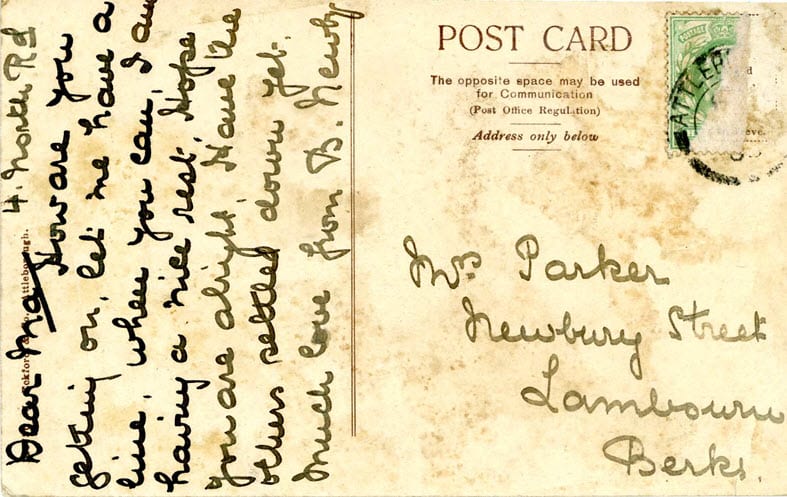 4. North Rd
Dear May How are you
getting on, let me have a
line, when you can, I am
having a nice rest, Hope
you are alright, Have the
others settled down yet.
Much love from B. Newby
Attleborough.
POST CARD
The opposite space may be used
for Communication
(Post Office Regulation)
Address only below
POSTAGE
ATTLEB
Mrs Parker
Newbury Street
Lambourn
Berks.